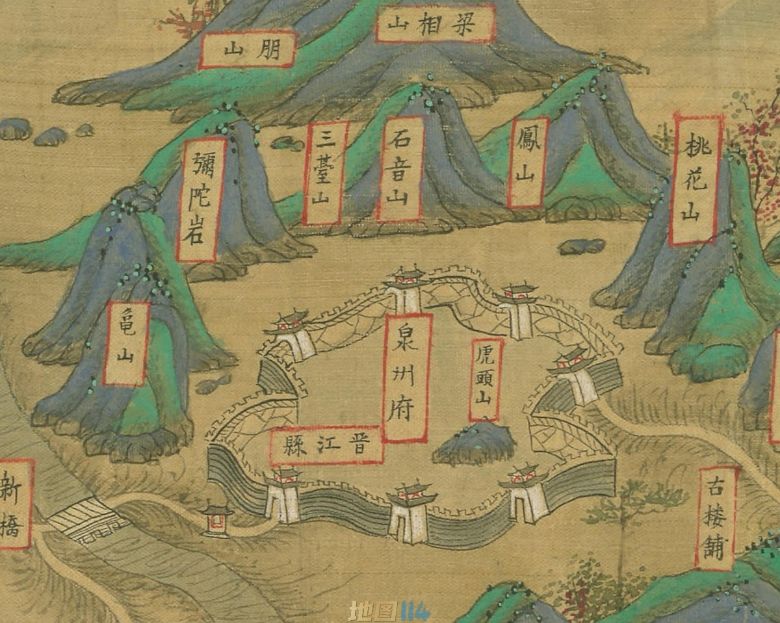 梁相山
朋山
彌陀岩
三䑓山
石音山
鳳山
桃花山
龜山
泉州府
虎頭山
晋江縣
新橋
古楼舖
地图114